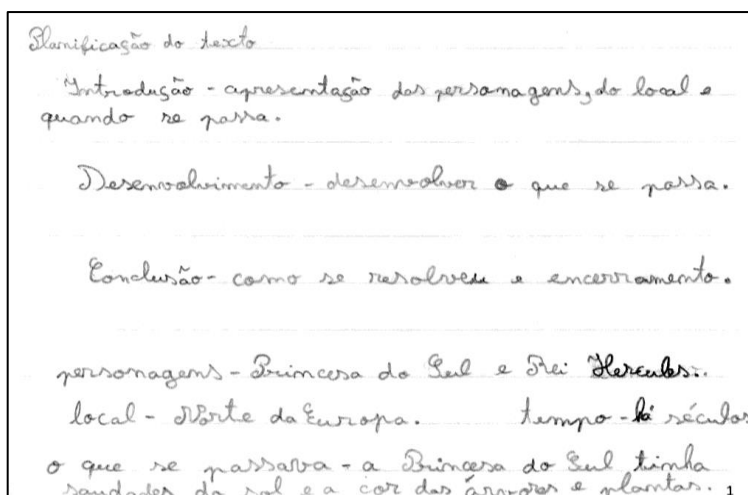 Planificação do texto
Introdução - apresentação das personagens, do local e
quando se passa.
Desenvolvimento - desenvolver o que se passa.
Conclusão - como se resolveu e encerramento.
personagens - Princesa do Sul e Rei Hercules.
local - Norte da Europa. tempo - há séculos
o que se passava - a Princesa do Sul tinha
saudades do sol e a cor das árvores e plantas. 1